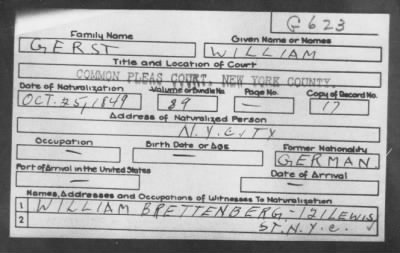 G623
Family Name Given Name or Names
GERST WILLIAM
Title and Location of Court
COMMON PLEAS COURT, NEW YORK COUNTY
Date of Naturalization Volume or Bundle No. Page No. Copy of Record No.
OCT. 25, 1849 89 — 17
Address of Naturalized Person
N.Y. CITY
Occupation Birth Date or Age Former Nationality
— — GERMAN
Port of Arrival in the United States Date of Arrival
— —
Names, Addresses and Occupations of Witnesses To Naturalization
1 WILLIAM BRETTENBERG - 121 LEWIS
2 ST. N.Y.C.